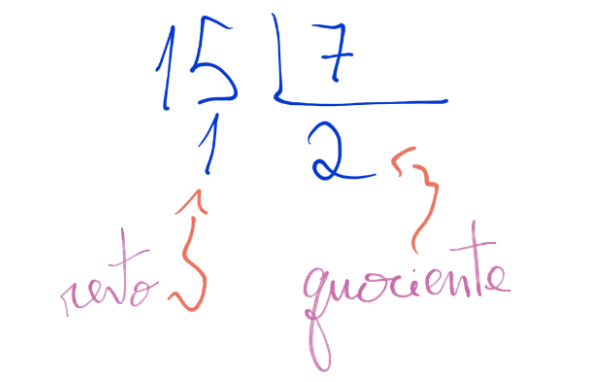 15 7
1 2
resto quociente